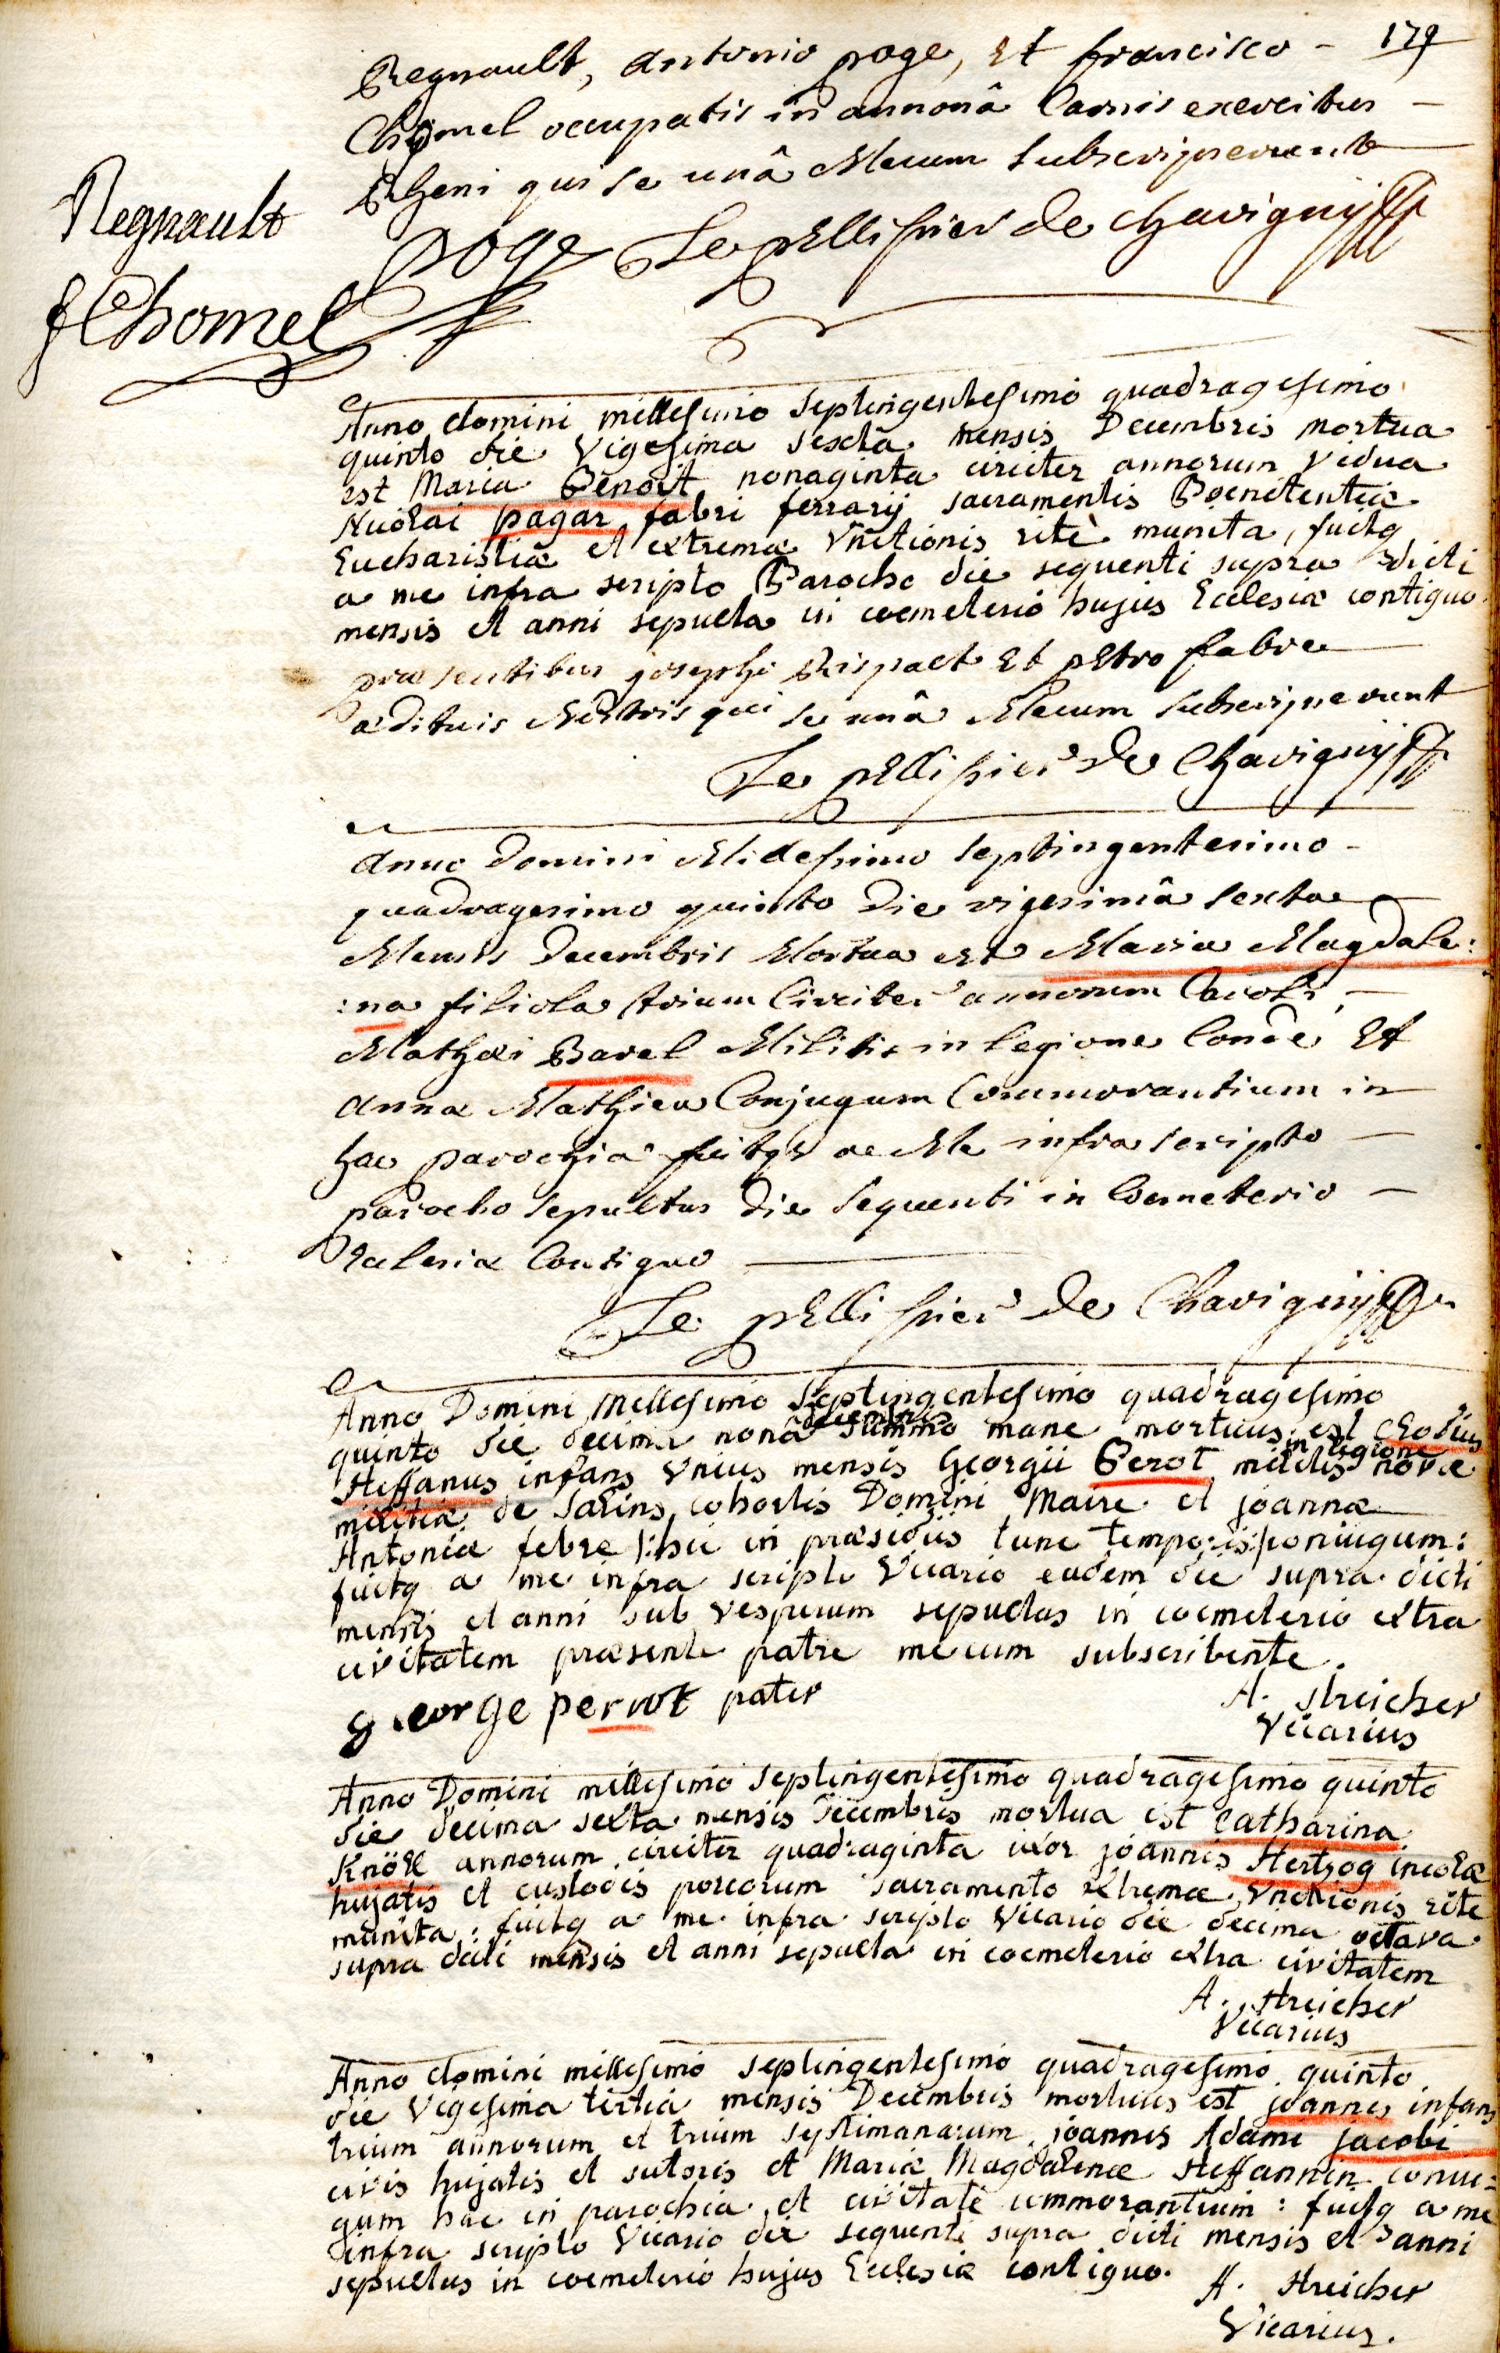 179
Regnault, antonio poge, Et francisco –
Chomel occupatis in annonâ Carnis exercitus –
Rheni qui se unâ Mecum subscripserunt
Regnault
poge Le pellissier de chavigny
f Chomel
Anno domini millesimo septingentesimo quadragesimo
quinto die vigesima sexta mensis Decembris mortua
est Maria Benoit nonaginta circiter annorum vidua
Nicolai pagar fabri ferrarij sacramentis Poenitentiæ
Eucharistiæ et extremæ Unctionis ritè munita, fuitq
a me infra scripto Parocho die sequenti supra dicti
mensis et anni sepulta in coemeterio hujus Ecclesiæ contiguo
præsentibus josepho Rispact Et petro fabre
ædituis Nostris qui se unâ Mecum subscripserunt
Le pellissier de Chavigny
anno Domini Millesimo septingentesimo –
quadragesimo quinto Die vigesimâ sexta
Mensis Decembris Mortua est Maria Magdale:
:na filiola trium Circiter annorum Caroli –
Mathæi Barel Militis in legione Condé Et
anna Mathieu Conjugum Commorantium in
hac parochia fuitq a Me infra scripto –
parocho sepultus Die sequenti in Coemeterio –
Ecclesiæ Contiguo
Le pellissier de Chavigny
Anno Domini Millesimo Septingentesimo quadragesimo
decembris
quinto die decima nonâ summo mane mortuus est Clodius
in legione
Steffanus infans unius mensis Georgii Perot militis novæ
militiæ de Salins, cohortis Domini Maire et joannæ
Antoniæ febre /:hic in præsidiis tunc temporis:/ coniugum:
fuitq a me infra scripto Vicario eadem die supra dicti
mensis et anni sub vesperum sepultus in coemeterio extra
civitatem præsente patre mecum subscribente.
george perrot pater
A. Streicher
Vicarius
Anno Domini millesimo septingentesimo quadragesimo quinto
die decima sexta mensis Decembris mortua est Catharina
Knöll annorum circiter quadraginta uxor joannis Hertzog incolæ
hujatis et custodis porcorum sacramento extremæ Unctionis rite
munita: fuitq a me infra scripto Vicario die decima octava
supra dicti mensis et anni sepulta in coemeterio extra civitatem
A. Streicher
Vicarius
Anno domini millesimo septingentesimo quadragesimo quinto
die vigesima tertia mensis Decembris mortuus est joannes infans
trium annorum et trium septimanarum joannis Adami jacobi
civis hujatis et sutoris et Mariæ Magdalenæ Steffannin coniu=
gum hac in parochia et civitate commorantium: fuitq a me
infra scripto Vicario die sequenti supra dicti mensis et anni
sepultus in coemeterio hujus Ecclesiæ contiguo.
A. Streicher
Vicarius.